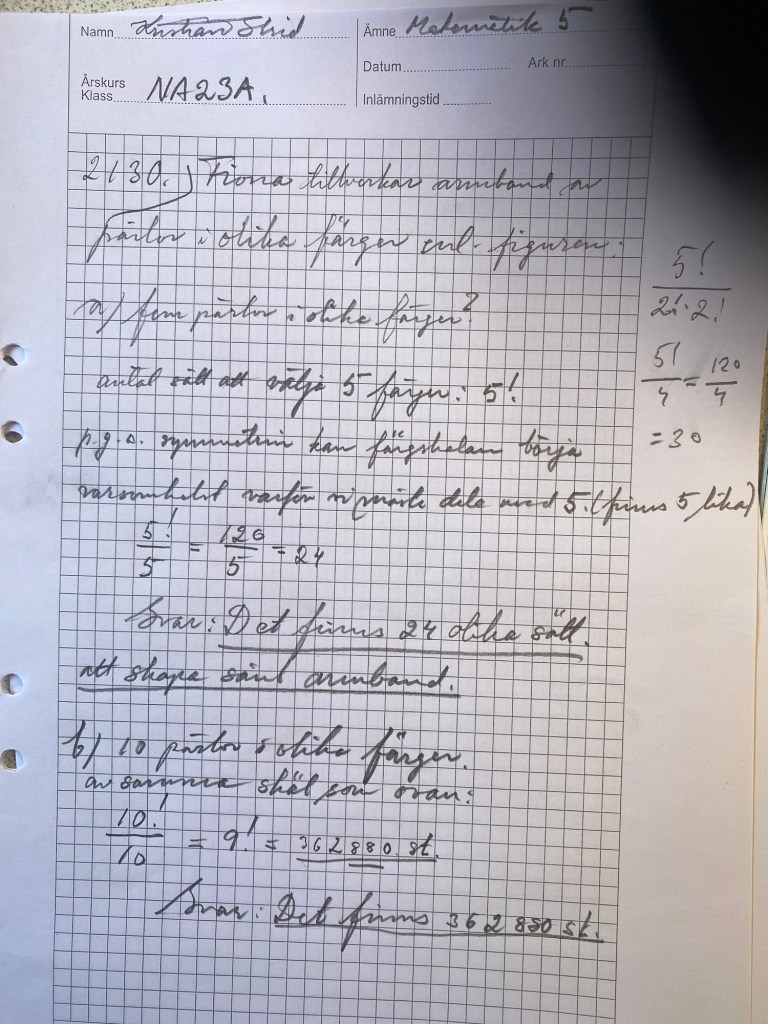 Namn Kristian Strid
Ämne Matematik 5
Datum
Ark nr
Årskurs
Klass NA23A.
Inlämningstid
2130. Fiona tillverkar armband av
pärlor i olika färger enl. figuren:
a) fem pärlor i olika färger?
antal sätt att välja 5 färger: 5!
p.g.a. symmetrin kan färgskalan börja
varsomhelst varför vi måste dela med 5. (finns 5 lika)
5!/5 = 120/5 = 24
Svar: Det finns 24 olika sätt
att skapa sånt armband.
b) 10 pärlor i olika färger.
av samma skäl som ovan:
10!/10 = 9! = 362880 st.
Svar: Det finns 362880 st.
5!/2!·2!
5!/4 = 120/4
= 30